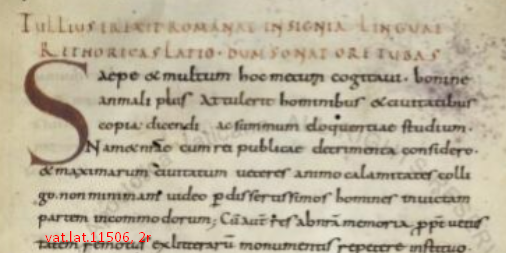 TULLIUS EREXIT ROMANAE INSIGNIA LINGUAE
RETHORICAS LATIO · DUM SONAT ORE TUBAS
Saepe & multum hoc mecum cogitaui · bonine
anmali plus Attulerit hominibus & ciuitatibus
copia dicendi ac summum eloquentiae studium ·
Nam & cum rei publicae detrimenta considero ·
& maximarum ciuitatum ueteres animo calamitates colli
go. non minimam uideo p dissertissimos homines inuictam
partem incommodorum; Cū aut̄ res ab nr̄a memoria ppt uetus
tatem remotas ex litterarū monumentis repetere instituo.
vat.lat.11506, 2r